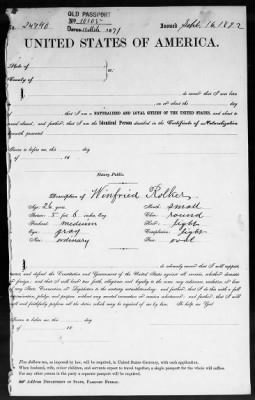 OLD PASSPORT
No. 10105
1871
No. 24440
Issued Sept. 16 1872
UNITED STATES OF AMERICA.
State of
ss:
County of
do swear that I was born
on or about the day
that I am a NATURALIZED AND LOYAL CITIZEN OF THE UNITED STATES, and about to
travel abroad; and further, that I am the Identical Person described in the Certificate of Naturalization
herewith presented.
Sworn to before me, this day
of 18
Notary Public.
Description of Winfried Rolker
Age: 26 years Mouth: small
Stature: 5 feet 6 inches Eng. Chin: round
Forehead: medium Hair: light
Eyes: gray Complexion: light
Nose: ordinary Face: oval
do solemnly swear that I will support,
protect, and defend the Constitution and Government of the United States against all enemies, whether domestic
or foreign; and that I will bear true faith, allegiance and loyalty to the same, any ordinance, resolution, or law
of any State, Convention, or Legislature to the contrary notwithstanding; and further, that I do this with a full
determination, pledge, and purpose, without any mental reservation or evasion whatsoever; and further, that I will
well and faithfully perform all the duties which may be required of me by law. So help me God.
Sworn to before me, this day
of 18
Five dollars tax, as imposed by law, will be required, in United States Currency, with each application.
When husband, wife, minor children, and servants expect to travel together, a single passport for the whole will suffice.
For any other person in the party a separate passport will be required.
Address DEPARTMENT OF STATE, PASSPORT BUREAU.